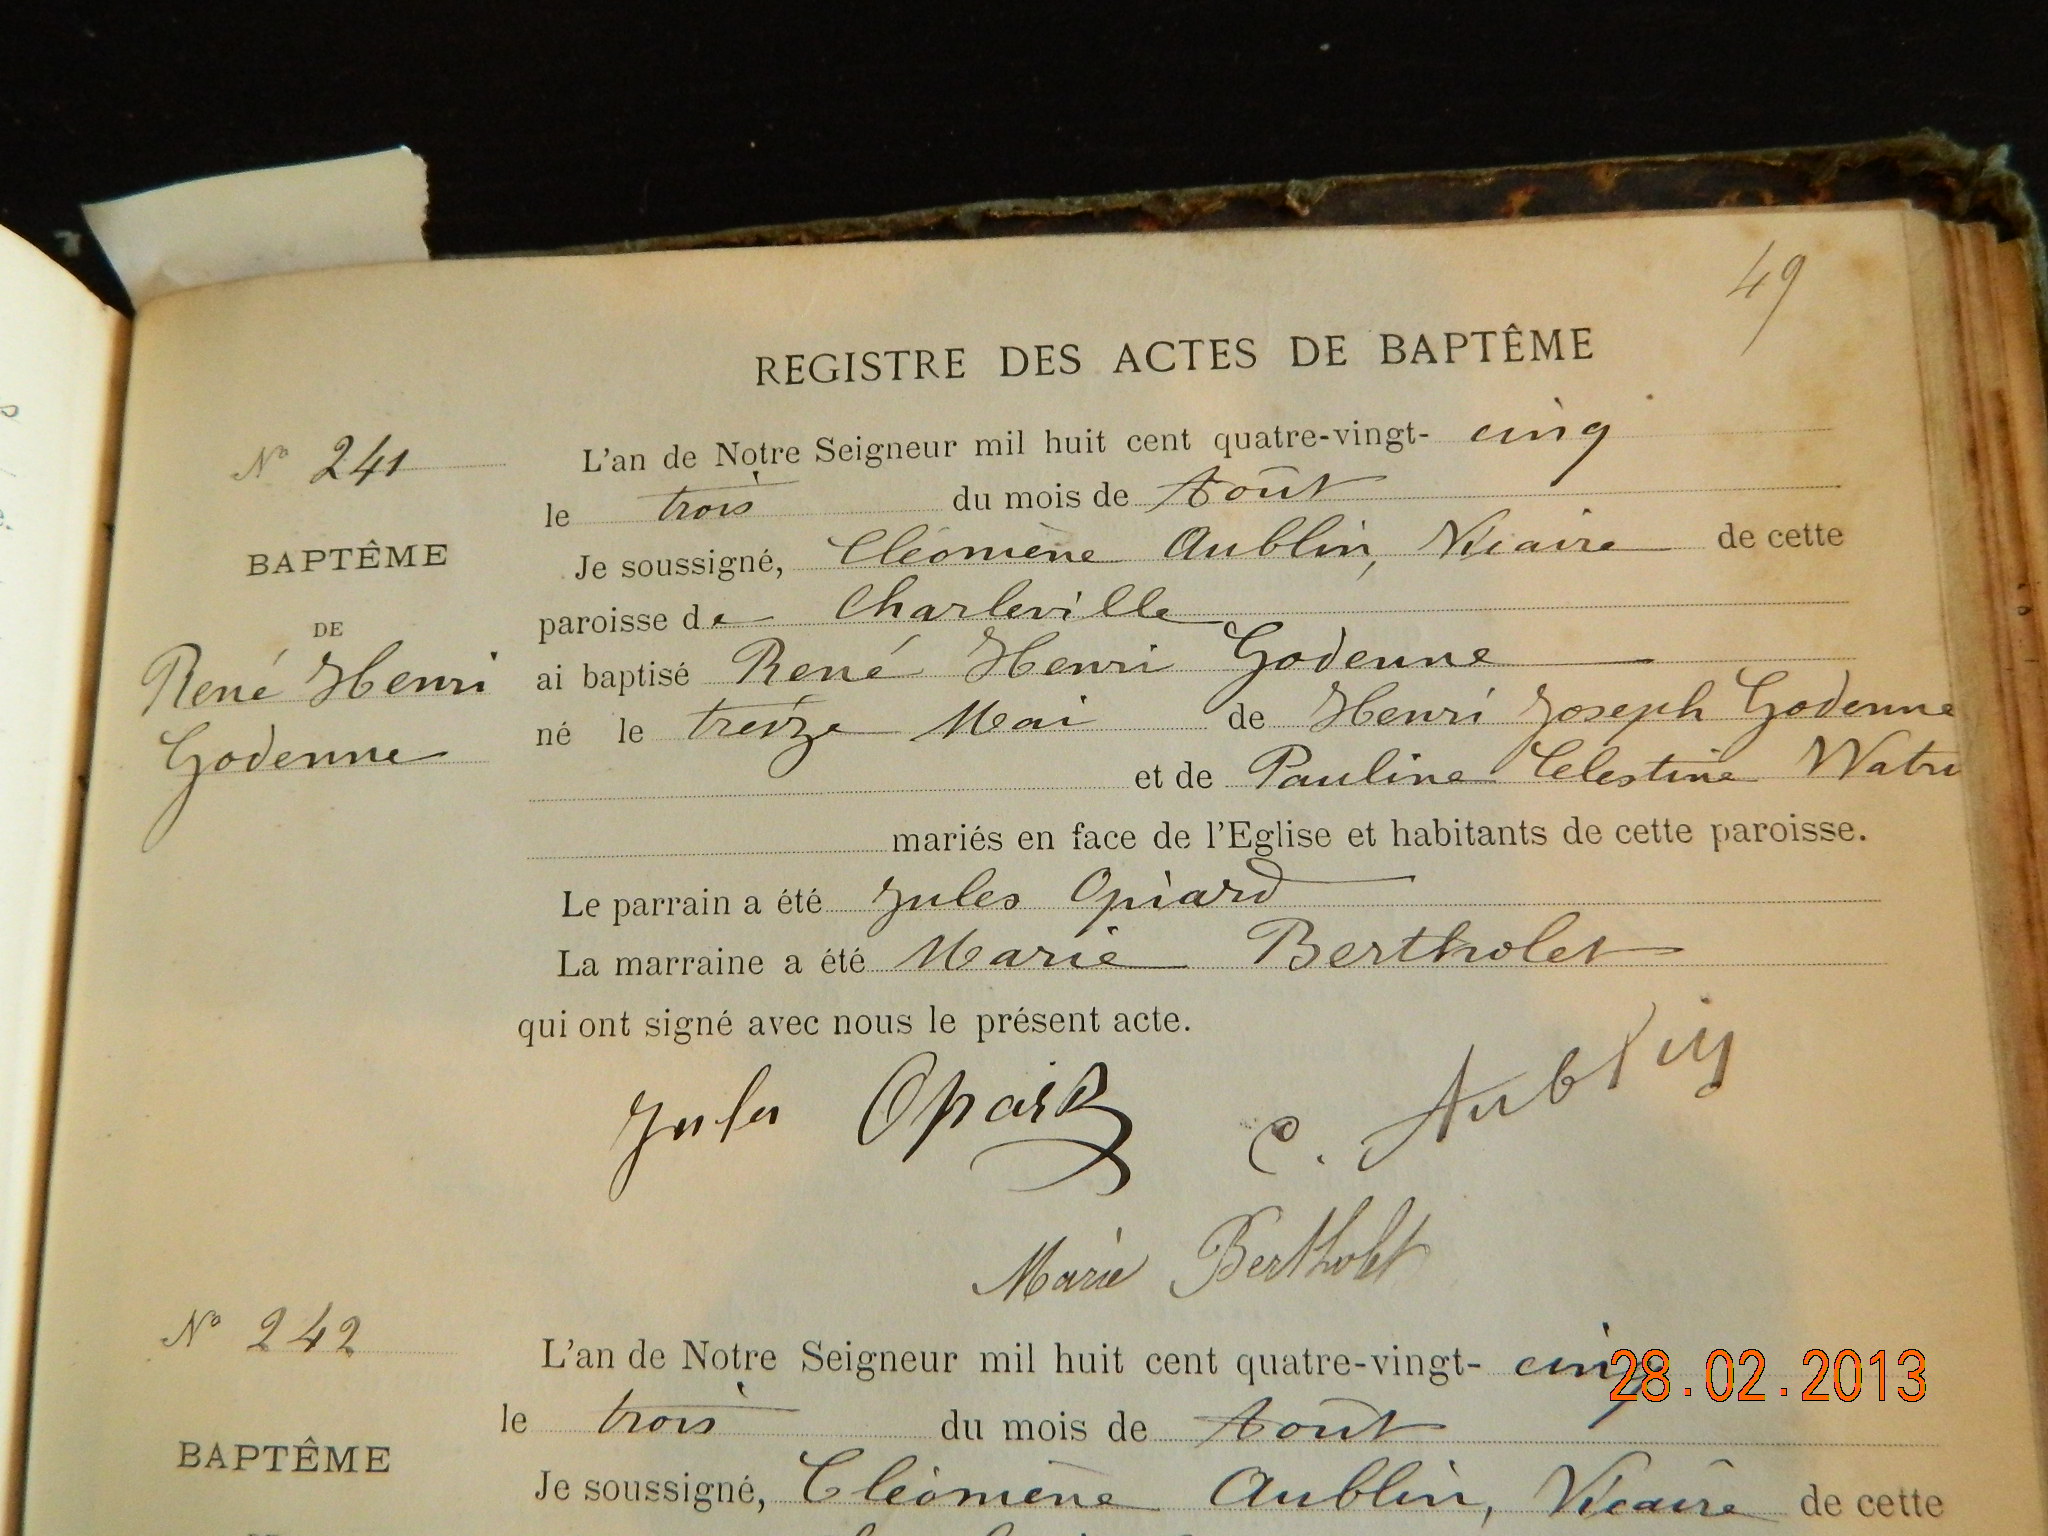 49
REGISTRE DES ACTES DE BAPTÊME
Nº 241
BAPTÊME
DE
René Henri
Godenne
L'an de Notre Seigneur mil huit cent quatre-vingt- cinq
le trois du mois de Août
Je soussigné, Cléomène Aublin, Vicaire de cette
paroisse de Charleville
ai baptisé René Henri Godenne
né le treize Mai de Henri Joseph Godenne
et de Pauline Celestine Watri
mariés en face de l'Eglise et habitants de cette paroisse.
Le parrain a été Jules Opiard
La marraine a été Marie Bertholet
qui ont signé avec nous le présent acte.
Jules C. Aublin
Marie Bertholet
Nº 242
BAPTÊME
L'an de Notre Seigneur mil huit cent quatre-vingt- cinq
le trois du mois de Août
Je soussigné, Cléomène Aublin, Vicaire de cette
28.02.2013